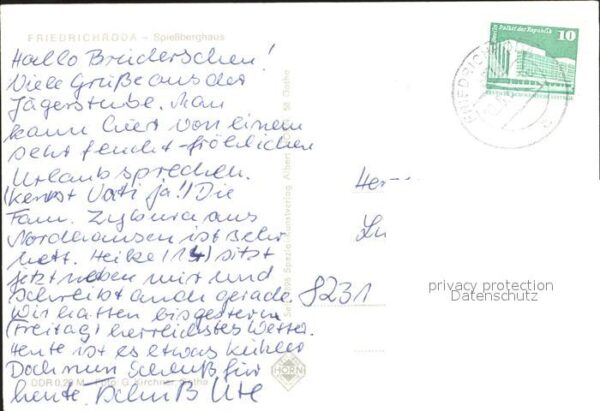 FRIEDRICHRODA – Spießberghaus
Hallo Brüderschen!
Viele Grüße aus der
Jägerstube. Man
kann hier von einem
sehr feucht-fröhlichen
Urlaub sprechen.
(kennst Vati ja!) Die
Fam. aus
Nordhausen ist sehr
nett. Heike (14) sitzt
jetzt neben mir und
schreibt auch gerade.
Wir hatten bis gestern
(Freitag) herrlichstes Wetter.
Heute ist es etwas kühler
Doch nun Schluß für
heute. Tschüß Ute
DDR 0,20 M Foto: G. Kirchner, Gotha
HORN
Berlin, Palast der Republik
10
Her
Ln
8231
privacy protection
Datenschutz